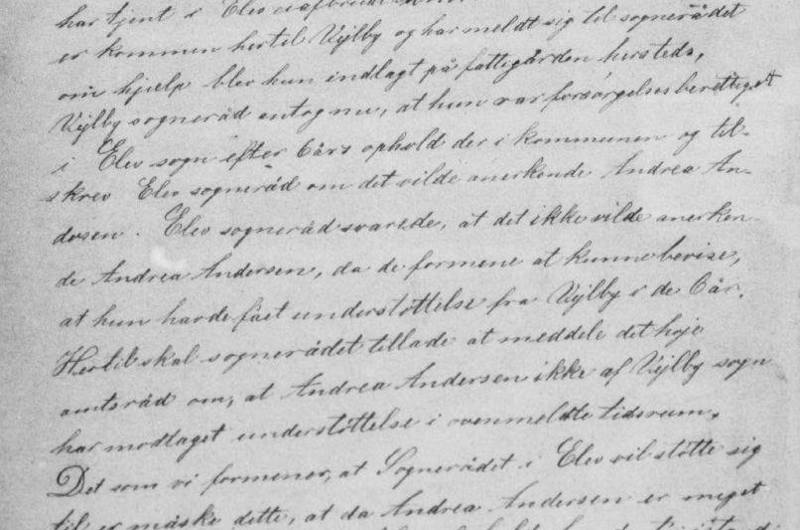 har tjent i Elev
er kommen hertil Vejlby og har meldt sig til sognerådet
om hjælp blev hun indlagt på fattigården hersteds,
Vejlby sogneråd antog nu, at hun var forsørgelsesberettiget
i Elev sogn efter 6 års ophold der i kommunen og til-
skrev Elev sogneråd om det vilde anerkende Andrea An-
dersen. Elev sogneråd svarede, at det ikke vilde anerken-
de Andrea Andersen, da de formene at kunne bevise,
at hun havde fået understøttelse fra Vejlby i de 6 år.
Hertil skal sognerådet tillade at meddele det høje
amtsråd om, at Andrea Andersen ikke af Vejlby sogn
har modtaget understøttelse i ovenmeldte tidsrum.
Det som vi formener, at Sognerådet i Elev vil støtte sig
til er måske dette, at da Andrea Andersen er meget